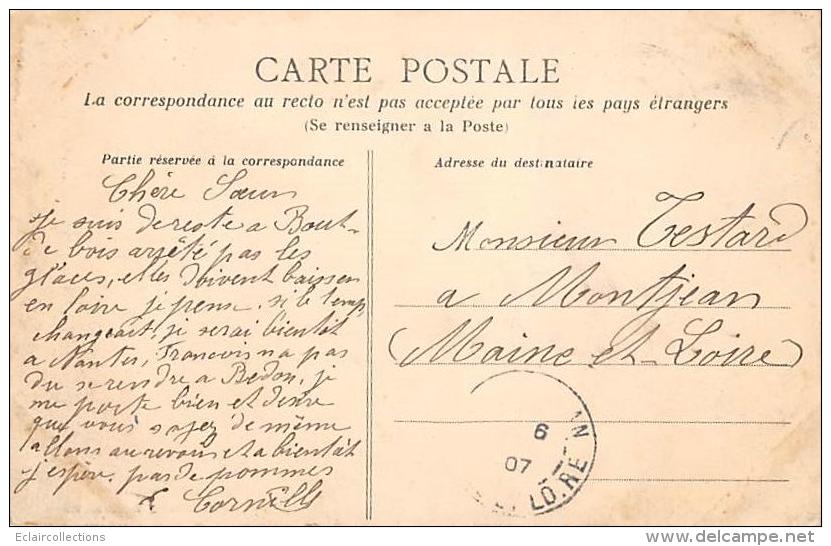 CARTE POSTALE
La correspondance au recto n'est pas acceptée par tous les pays étrangers
(Se renseigner a la Poste)
Partie réservée à la correspondance
Adresse du destinataire
Chère Sœur
je suis de reste a Bout-
de bois arrêté pas les
glaces, elles doivent baisser
en loire je pense. si le temp
changeait, je serai bientôt
a Nantes, Francois na pas
du se rendre a Redon, je
me porte bien et desire
que vous soyez de même
allons au revoir et a bientôt
j'espère. pas de pommes
Cornille
Monsieur Testard
a Montjean
(Maine et-Loire)
6
07
LOIRE
Eclaircollections
www.delcampe.net